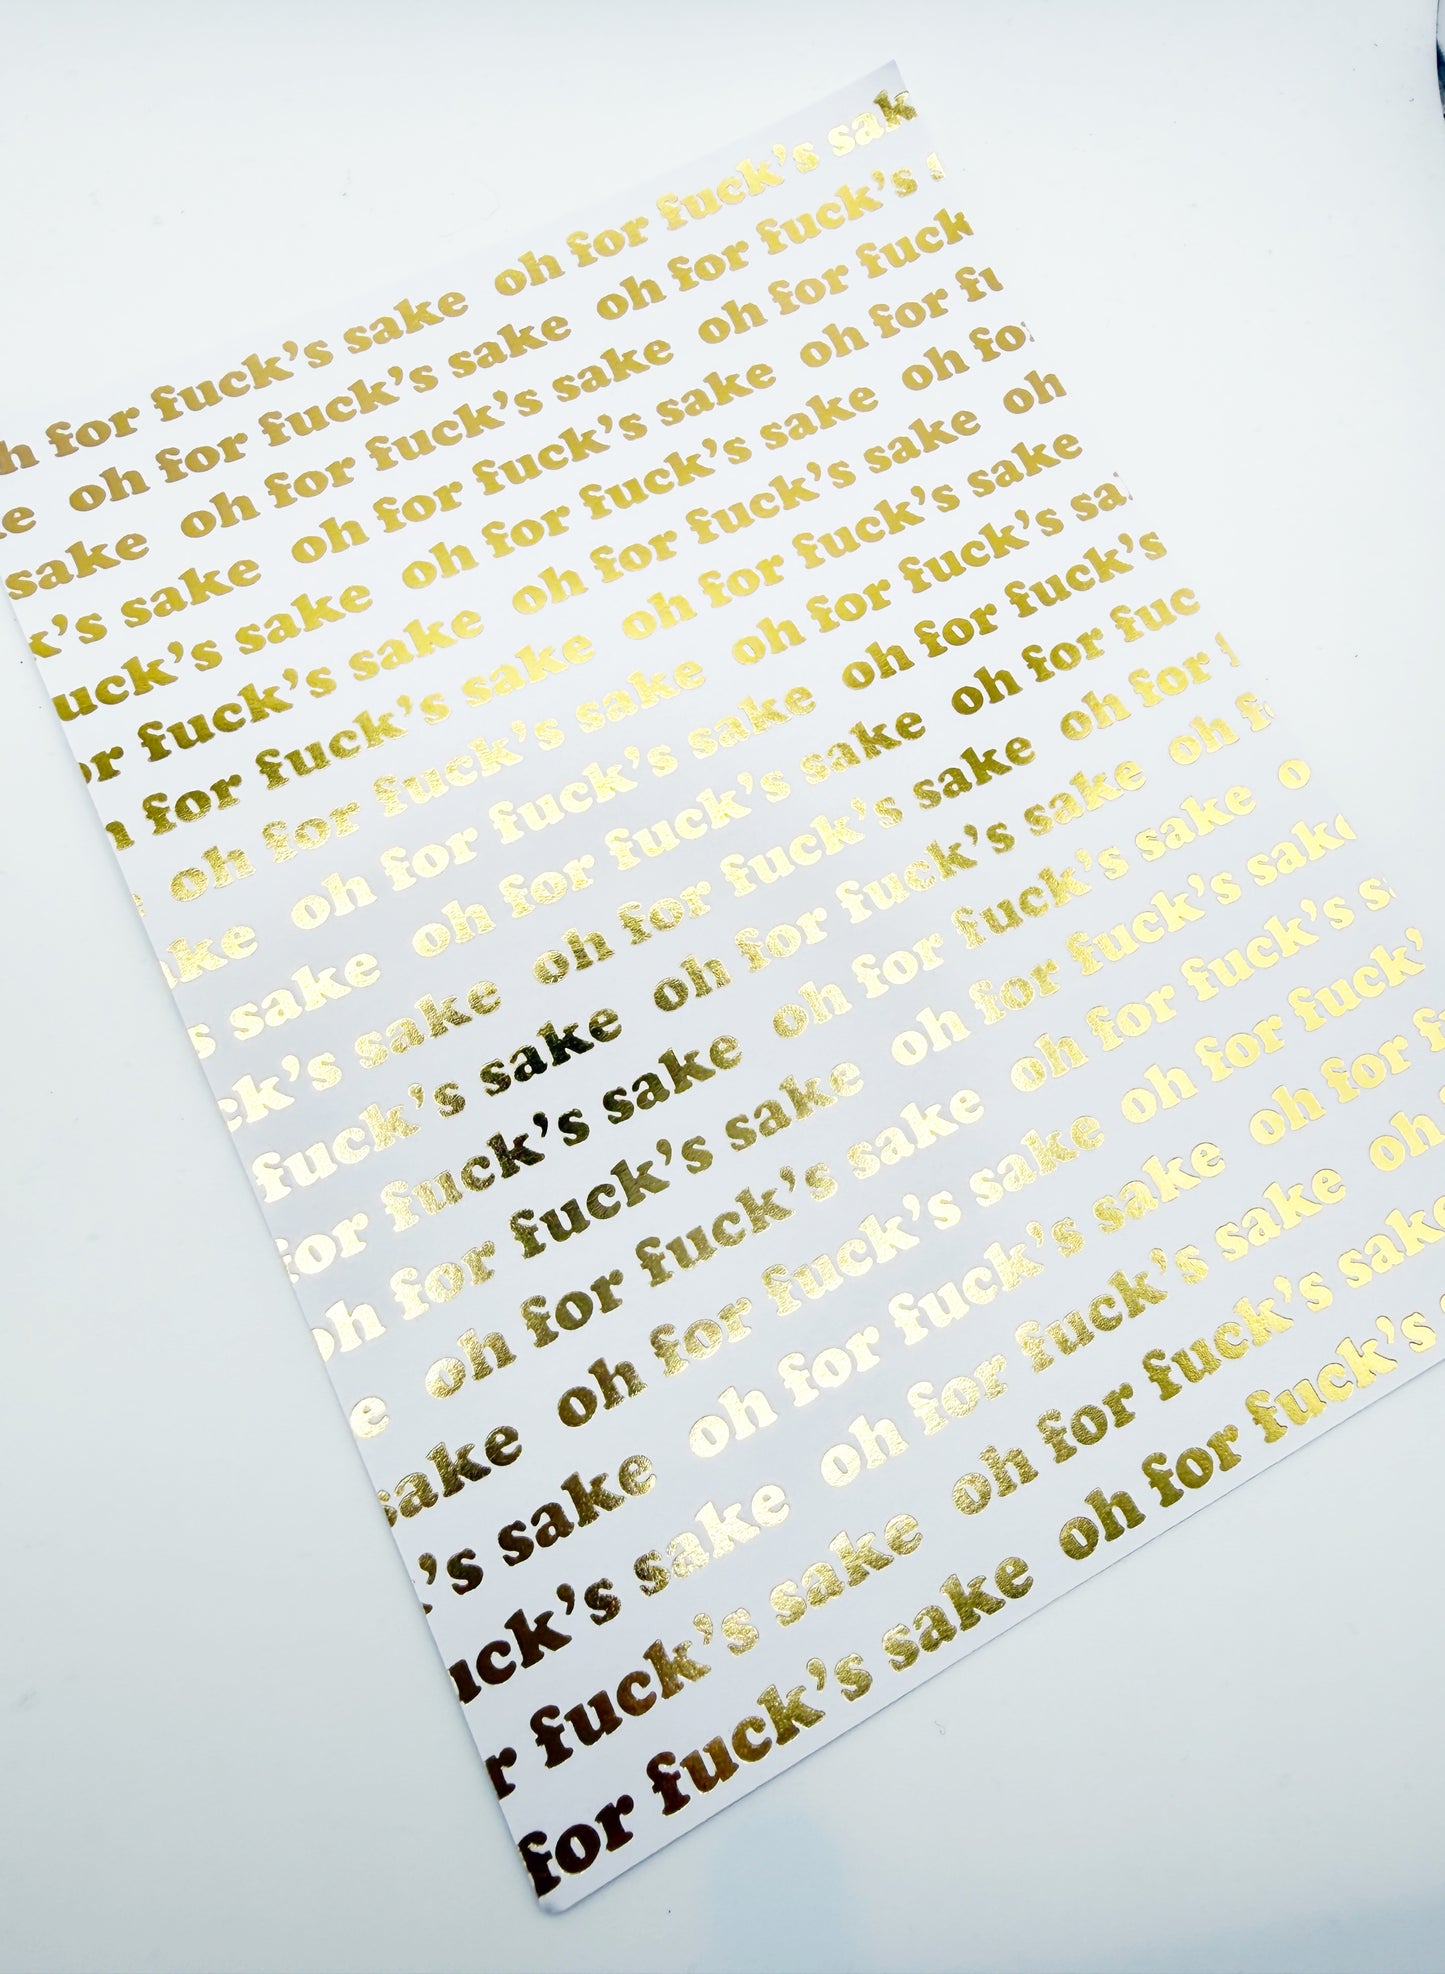 h for fuck's sake oh for fuck's sak
e oh for fuck's sake oh for fuck's
sake oh for fuck's sake oh for fuck
k's sake oh for fuck's sake oh for fu
uck's sake oh for fuck's sake oh fo
or fuck's sake oh for fuck's sake oh
h for fuck's sake oh for fuck's sake
oh for fuck's sake oh for fuck's sa
ake oh for fuck's sake oh for fuck's
s sake oh for fuck's sake oh for fuc
ck's sake oh for fuck's sake oh for
fuck's sake oh for fuck's sake oh f
for fuck's sake oh for fuck's sake o
oh for fuck's sake oh for fuck's sake
e oh for fuck's sake oh for fuck's s
sake oh for fuck's sake oh for fuck'
's sake oh for fuck's sake oh for f
uck's sake oh for fuck's sake oh
r fuck's sake oh for fuck's sake
for fuck's sake oh for fuck's